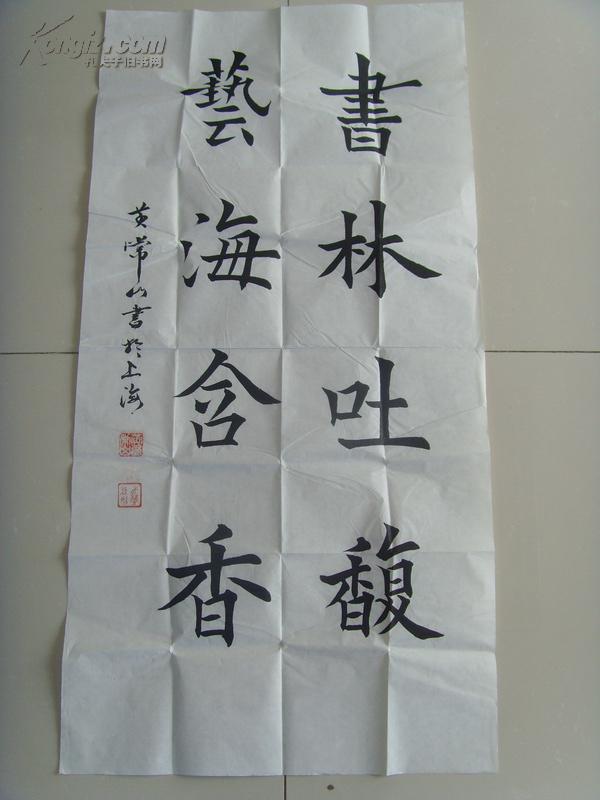 書林吐馥
藝海含香
黄常山書於上海
Kongfz.com
孔夫子旧书网